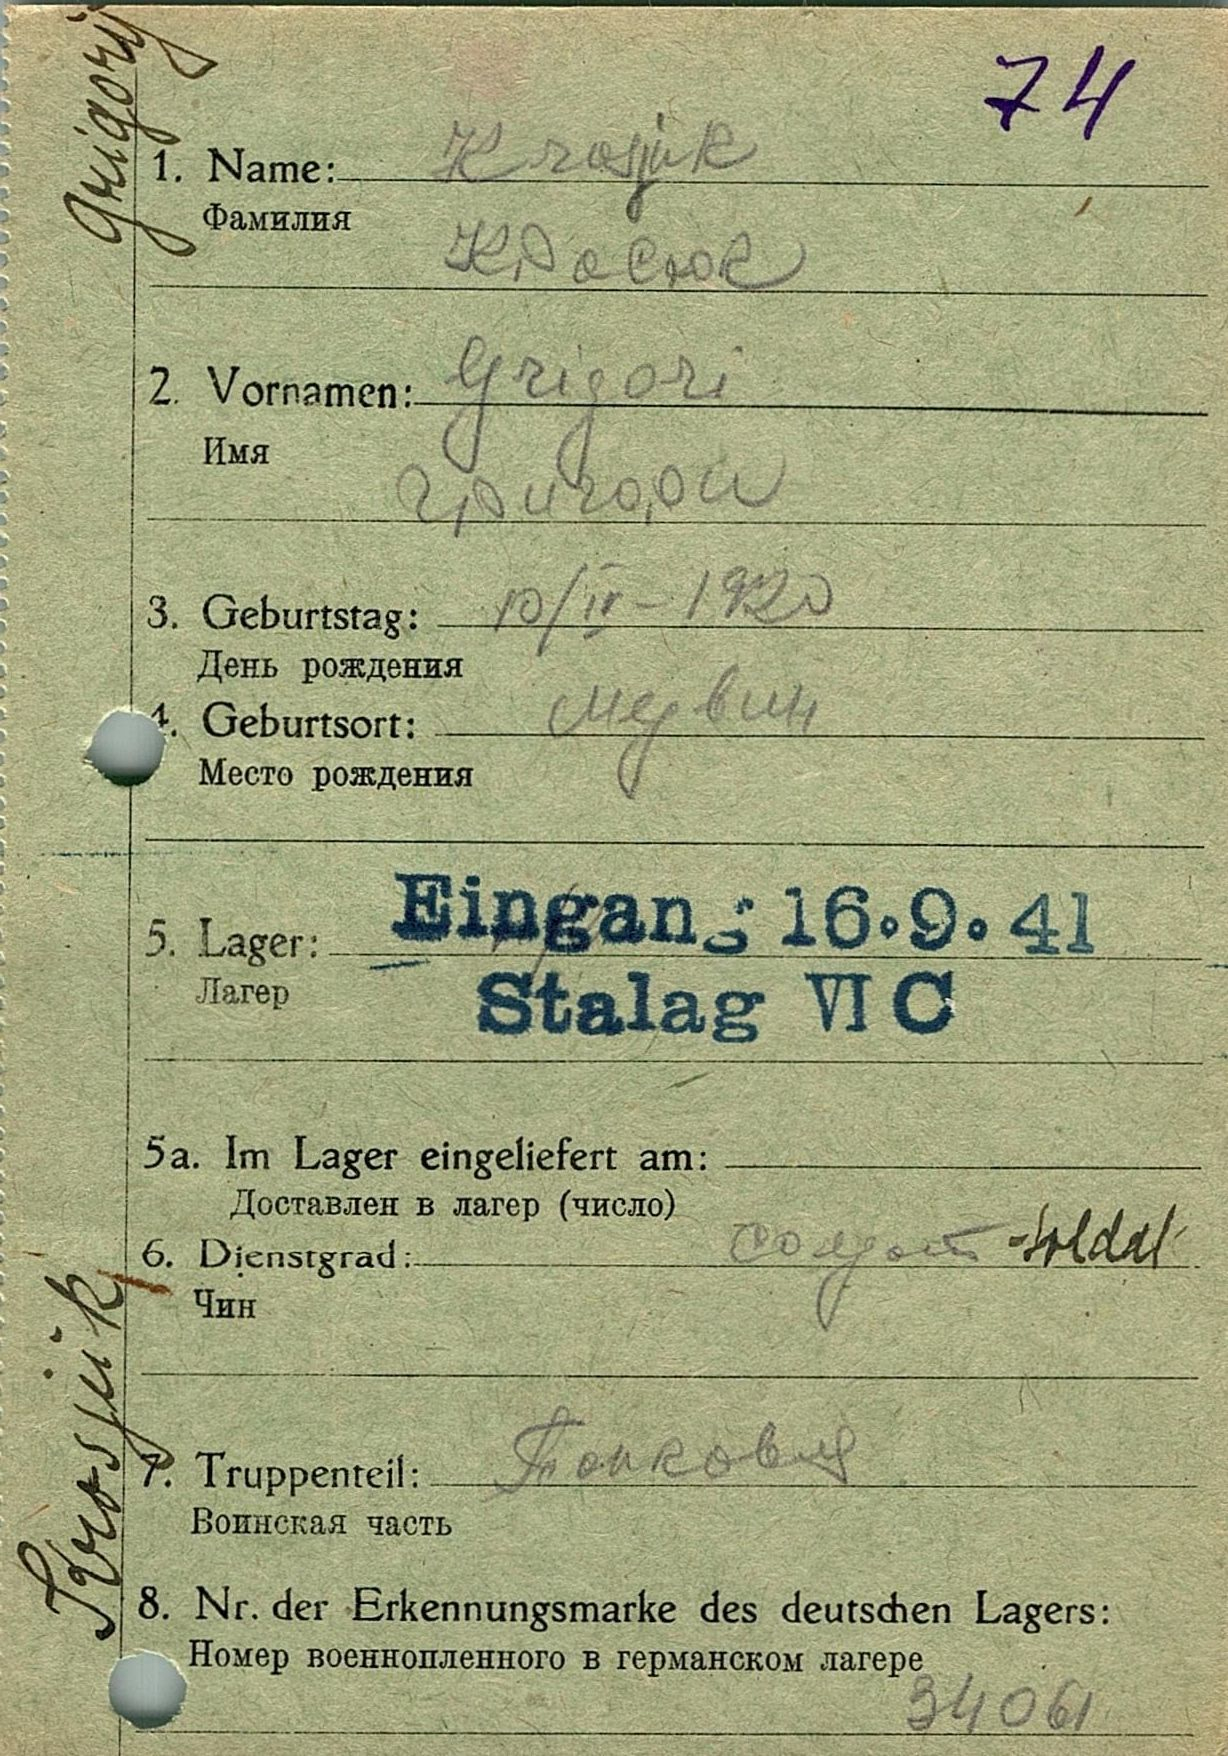 Grigorij
74
1. Name: Krosjuk
Фамилия
Кросюк
2. Vornamen: Grigori
Имя
Григори
3. Geburtstag: 10/IV - 1920
День рождения
4. Geburtsort: Медвин
Место рождения
5. Lager: Eingang 16.9.41
Лагер
Stalag VI C
5a. Im Lager eingeliefert am:
Доставлен в лагер (число)
6. Dienstgrad: солдат - Soldat
Чин
Krosjuk
7. Truppenteil:
Воинская часть
8. Nr. der Erkennungsmarke des deutschen Lagers:
Номер военнопленного в германском лагере
34061